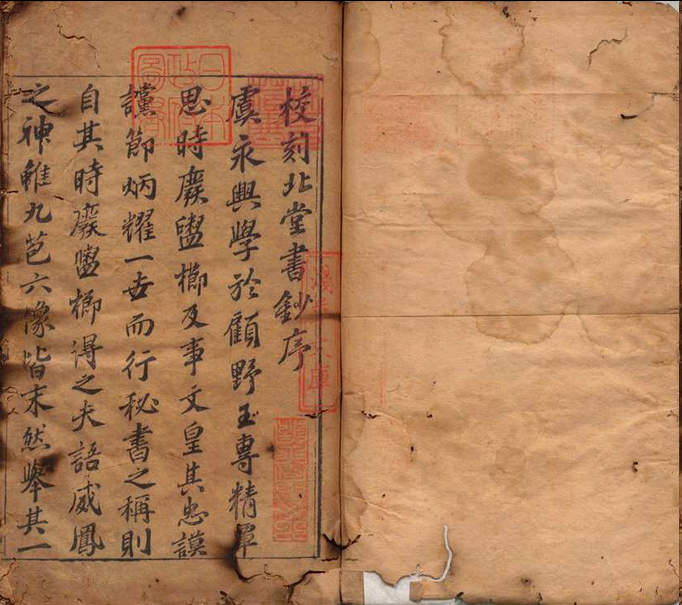 校刻北堂書鈔序
虞永興學於顧野王專精覃
思時廢盥櫛及事文皇其忠謨
讜節炳耀一世而行秘書之稱則
自其時廢盥櫛得之夫語威鳳
之神雖九苞六像皆末然舉其一
日本
政府
圖書
淺草文庫